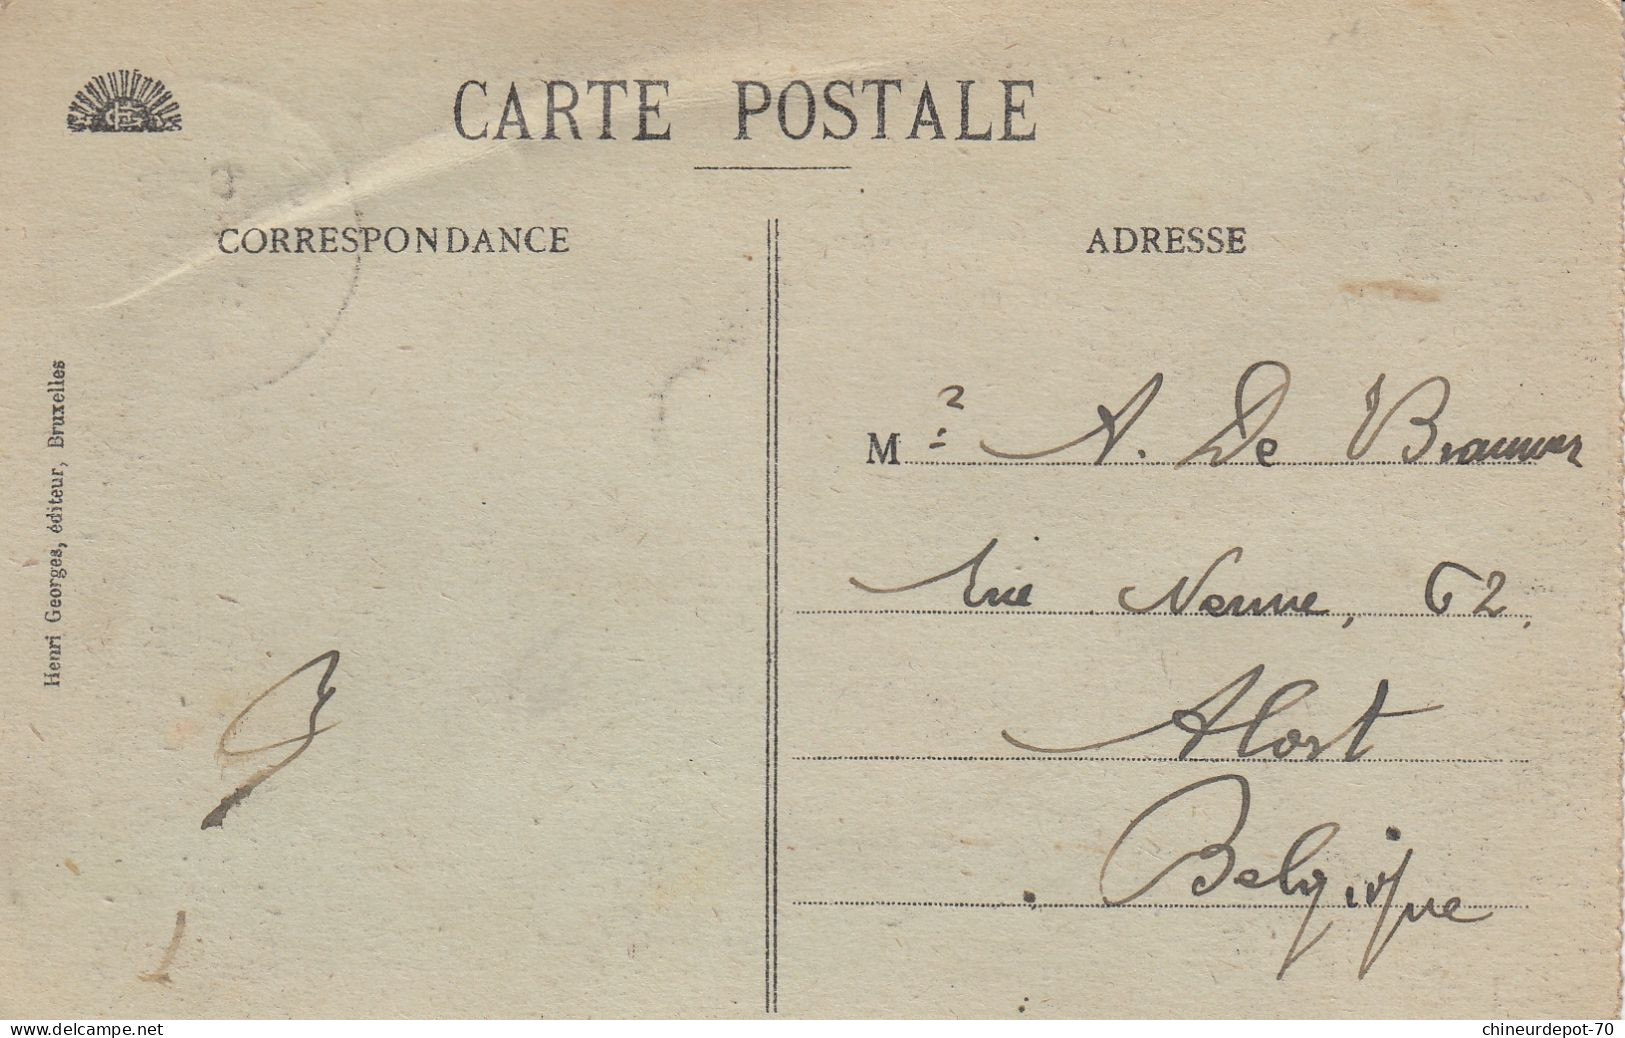 CARTE POSTALE
CORRESPONDANCE
ADRESSE
Henri Georges, éditeur, Bruxelles
Mr A. De
rue Neuve, 62,
Alost
Belgique
delcampe.net
chineurdepot-70